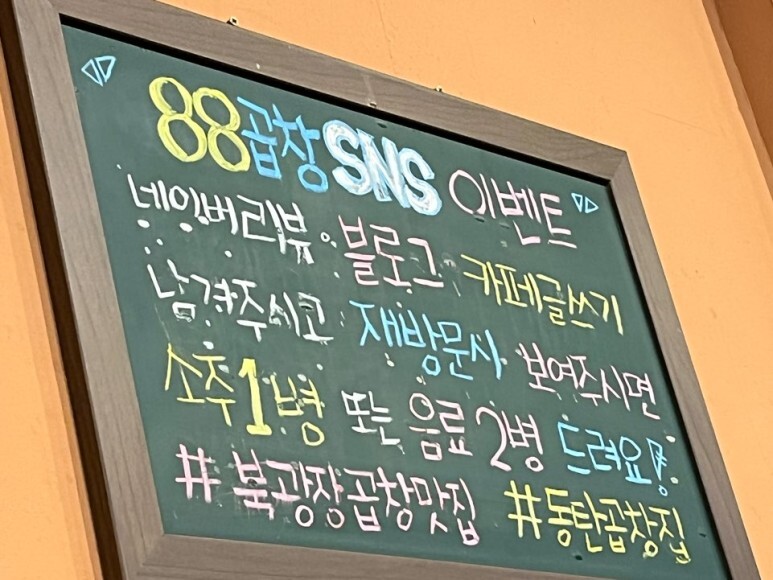 88곱창 SNS 이벤트
네이버리뷰·블로그 카페글쓰기
남겨주시고 재방문사 보여주시면
소주1병 또는 음료 2병 드려요!
#북광장곱창맛집 #동탄곱창집